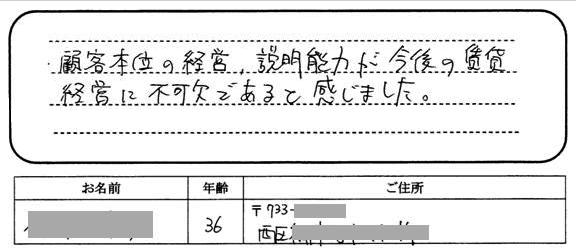 ・顧客本位の経営、説明能力が今後の賃貸
経営に不可欠であると感じました。
お名前 年齢 ご住所
36 〒733-
西区